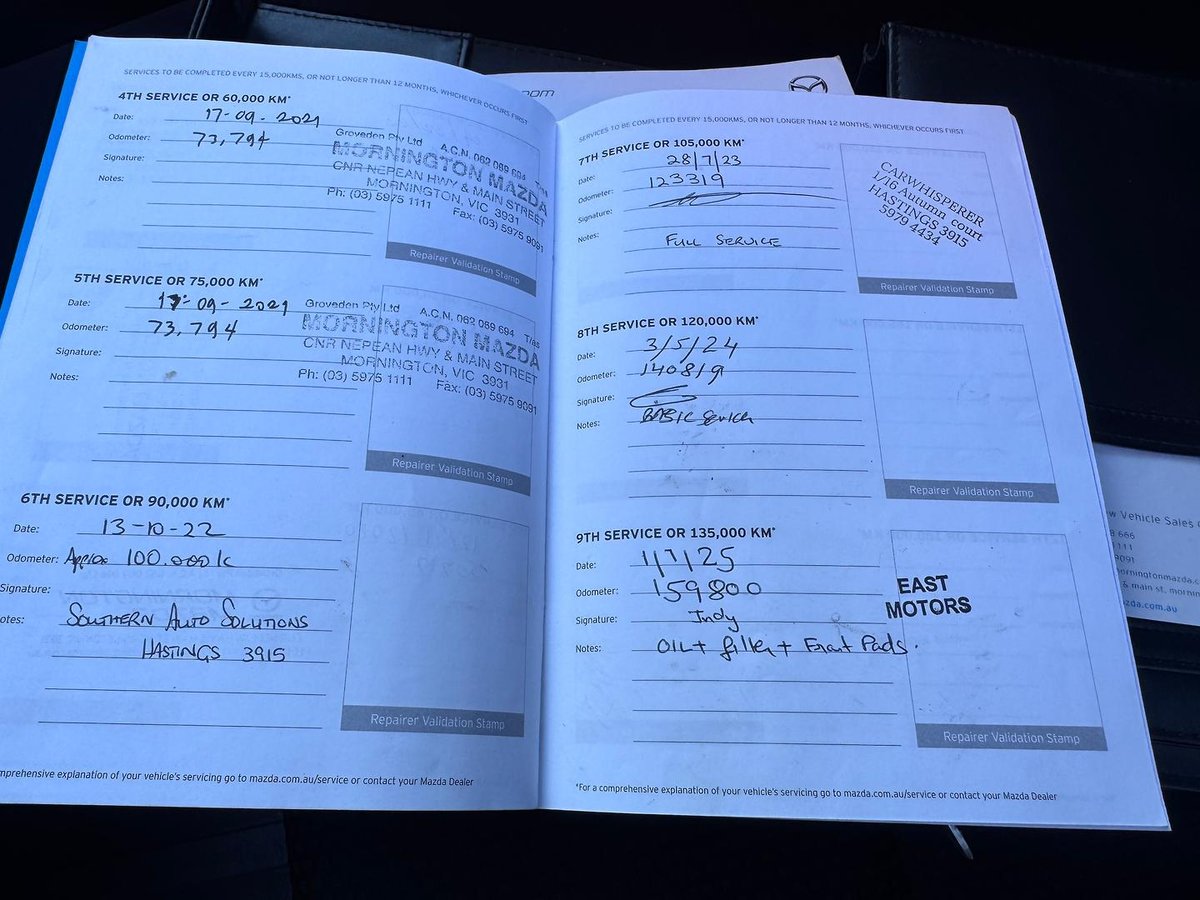 SERVICES TO BE COMPLETED EVERY 15,000KMS, OR NOT LONGER THAN 12 MONTHS, WHICHEVER OCCURS FIRST
4TH SERVICE OR 60,000 KM*
Date: 17-09-2021
Odometer: 73,794
Signature:
Notes:
Groveden Pty Ltd A.C.N. 062 069 694 T/as
MORNINGTON MAZDA
CNR NEPEAN HWY & MAIN STREET
MORNINGTON, VIC 3931
Ph: (03) 5975 1111 Fax: (03) 5975 9091
Repairer Validation Stamp
5TH SERVICE OR 75,000 KM*
Date: 17-09-2021
Odometer: 73,794
Signature:
Notes:
Groveden Pty Ltd A.C.N. 062 069 694 T/as
MORNINGTON MAZDA
CNR NEPEAN HWY & MAIN STREET
MORNINGTON, VIC 3931
Ph: (03) 5975 1111 Fax: (03) 5975 9091
Repairer Validation Stamp
6TH SERVICE OR 90,000 KM*
Date: 13-10-22
Odometer: Approx 100.000k
Signature:
otes: SOUTHERN AUTO SOLUTIONS
HASTINGS 3915
Repairer Validation Stamp
mprehensive explanation of your vehicle's servicing go to mazda.com.au/service or contact your Mazda Dealer
SERVICES TO BE COMPLETED EVERY 15,000KMS, OR NOT LONGER THAN 12 MONTHS, WHICHEVER OCCURS FIRST
7TH SERVICE OR 105,000 KM*
Date: 28/7/23
Odometer: 123319
Signature:
Notes: FULL SERVICE
CARWHISPERER
1/16 Autumn court
HASTINGS 3915
5979 4434
Repairer Validation Stamp
8TH SERVICE OR 120,000 KM*
Date: 3/5/24
Odometer: 140819
Signature:
Notes: BASIC Service
Repairer Validation Stamp
9TH SERVICE OR 135,000 KM*
Date: 1/7/25
Odometer: 159800
Signature: Indy
Notes: OIL + filter + Front Pads.
EAST
MOTORS
Repairer Validation Stamp
*For a comprehensive explanation of your vehicle's servicing go to mazda.com.au/service or contact your Mazda Dealer
om
w Vehicle Sales
8 666
111
9091
morningtonmazda.c
& main st, mornin
zda.com.au